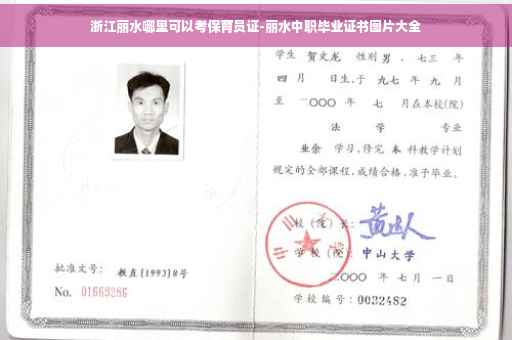 浙江丽水哪里可以考保育员证-丽水中职毕业证书图片大全
学生 贺文龙 性别 男，七三 年
四 月 日生，于 九七 年 九 月
至 二〇〇〇 年 七 月在本校(院)
法 学 专业
业余 学习，修完 本 科教学计划
规定的全部课程，成绩合格，准予毕业。
校(院)长：
学校(院)：中山大学
二〇〇〇 年 七 月 一 日
批准文号：教直[1993]8号
No. 01669286
学校编号：0032482